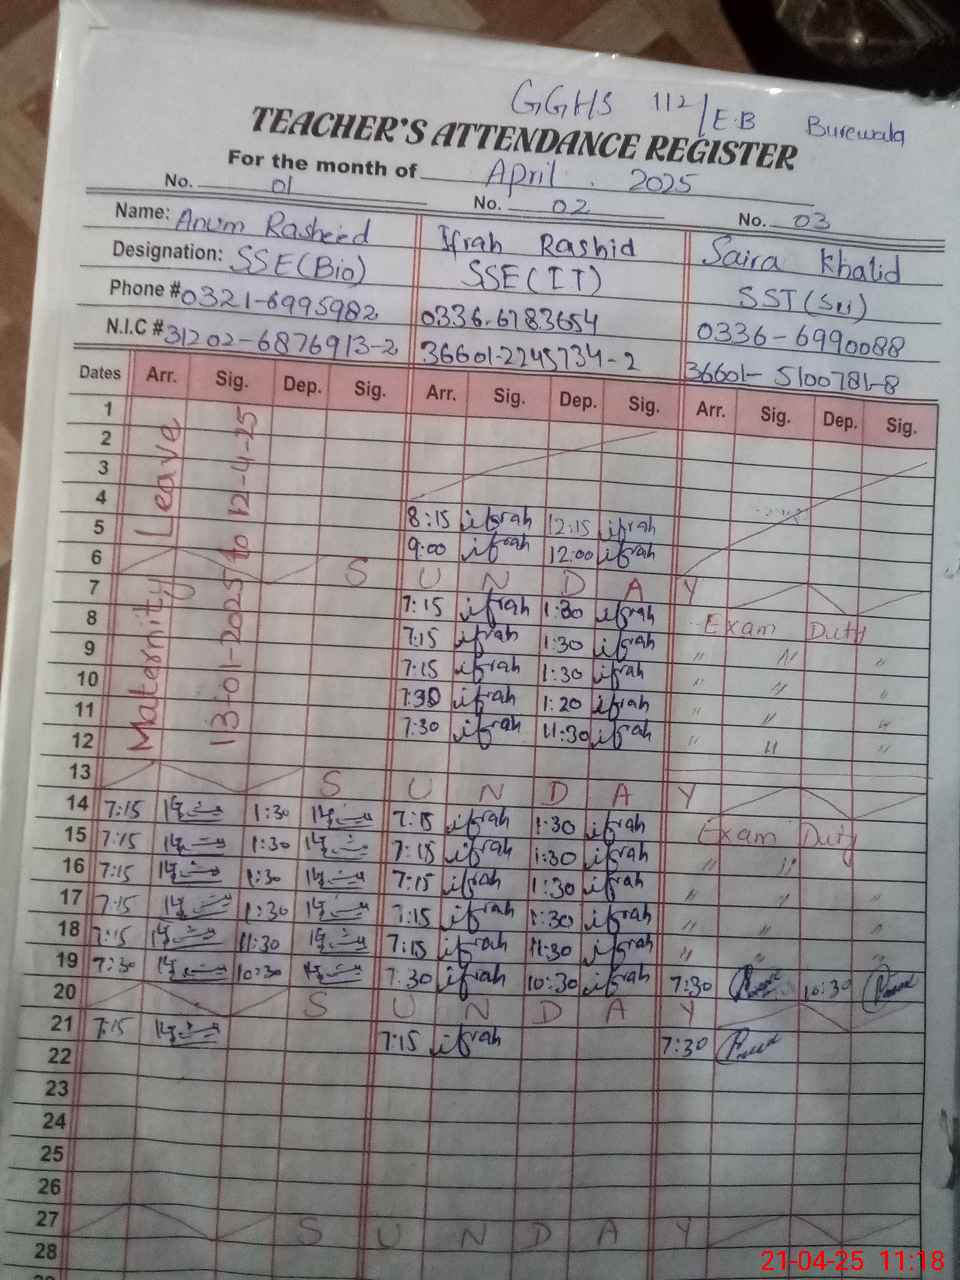 GGHS 112/E.B Burewala
TEACHER'S ATTENDANCE REGISTER
For the month of April . 2025
No. 01 No. 02 No. 03
Name: Anum Rasheed Ifrah Rashid Saira Khalid
Designation: SSE(Bio) SSE(IT) SST(Sci)
Phone # 0321-6995982 0336-6783654 0336-6990088
N.I.C # 31202-6876913-2 36601-2245734-2 36601-5100781-8
Dates Arr. Sig. Dep. Sig. Arr. Sig. Dep. Sig. Arr. Sig. Dep. Sig.
Maternity Leave
13-01-2025 to 12-4-25
1
2
3
4
5 8:15 ifrah 12:15 ifrah
6 9:00 ifrah 12:00 ifrah
7 S U N D A Y
8 7:15 ifrah 1:30 ifrah Exam Duty
9 7:15 ifrah 1:30 ifrah " " "
10 7:15 ifrah 1:30 ifrah " " "
11 7:30 ifrah 1:20 ifrah " " "
12 7:30 ifrah 11:30 ifrah " " "
13 S U N D A Y
14 7:15 1:30 7:15 ifrah 1:30 ifrah Exam Duty
15 7:15 1:30 7:15 ifrah 1:30 ifrah " "
16 7:15 1:30 7:15 ifrah 1:30 ifrah " " "
17 7:15 1:30 7:15 ifrah 1:30 ifrah " " "
18 7:15 11:30 7:15 ifrah 11:30 ifrah " " "
19 7:30 10:30 7:30 ifrah 10:30 ifrah 7:30 10:30
20 S U N D A Y
21 7:15 7:15 ifrah 7:30
22
23
24
25
26
27 S U N D A Y
28
21-04-25 11:18